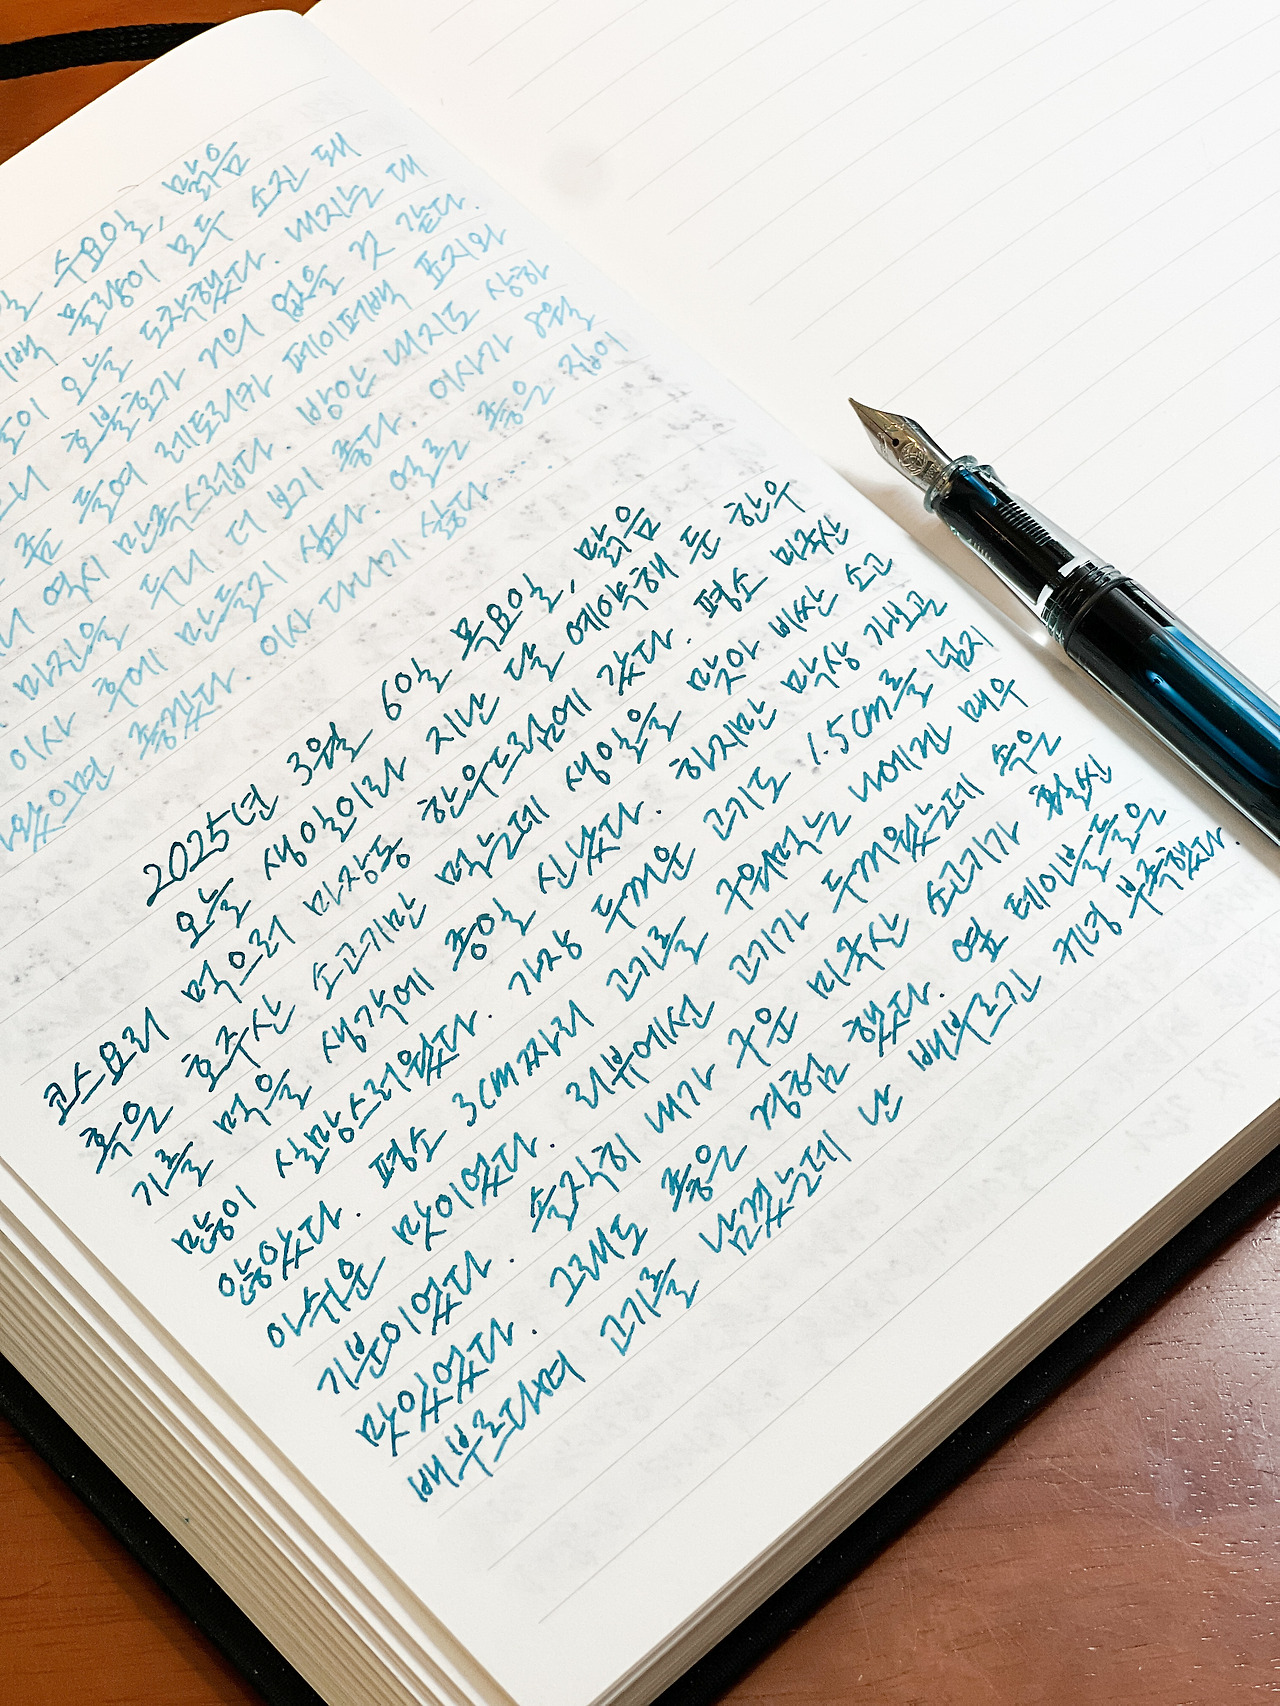 일 수요일, 맑음
백 물량이 모두 소진 돼
이 오늘 도착했다. 내지는 대
호불호가 거의 없을 것 같다.
좀 들여 레토리카 페이퍼백 표지와
역시 만족스럽다. 방안 내지도 상하
마진을 두니 더 보기 좋다. 이사가 8월
이사 후에 만들지 싶다. 얼른 좋은 집이
왔으면 좋겠다. 이사 다니기 싫다....
2025년 3월 6일 목요일, 맑음
오늘 생일이라 지난 달 예약해 둔 한우
코스요리 먹으러 마장동 한우드림에 갔다. 평소 미국산
혹은 호주산 소고기만 먹는데 생일을 맞아 비싼 소고
기를 먹을 생각에 종일 신났다. 하지만 막상 가보고
많이 실망스러웠다. 가장 두꺼운 고기도 1.5cm를 넘지
않았다. 평소 3cm짜리 고기를 구워먹는 나에겐 매우
아쉬운 맛이었다. 리뷰에선 고기가 두꺼웠는데 속은
기분이었다. 솔직히 내가 구운 미국산 소고기가 훨씬
맛있었다. 그래도 좋은 경험 했다. 옆 테이블들은
배부르다며 고기를 남겼는데 난 배부르긴 커녕 부족했다.